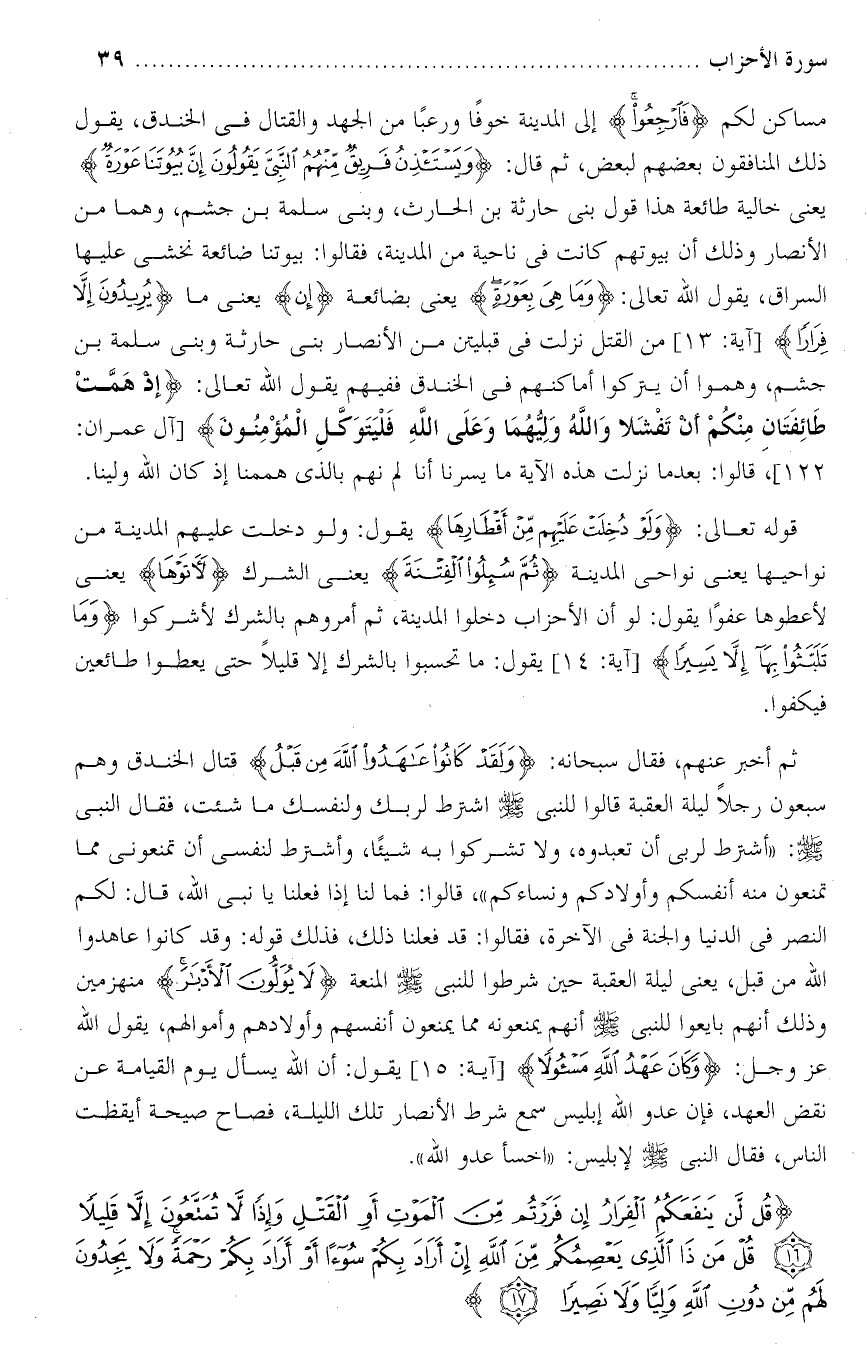 سورة الأحزاب ........................................................................ ٣٩
مساكن لكم ﴿فَٱرْجِعُوا۟ۚ﴾ إلى المدينة خوفًا ورعبًا من الجهد والقتال فى الخندق، يقول
ذلك المنافقون بعضهم لبعض، ثم قال: ﴿وَيَسْتَـْٔذِنُ فَرِيقٌ مِّنْهُمُ ٱلنَّبِىَّ يَقُولُونَ إِنَّ بُيُوتَنَا عَوْرَةٌ﴾
يعنى خالية طائعة هذا قول بنى حارثة بن الحارث، وبنى سلمة بن جشم، وهما من
الأنصار وذلك أن بيوتهم كانت فى ناحية من المدينة، فقالوا: بيوتنا ضائعة نخشى عليها
السراق، يقول الله تعالى: ﴿وَمَا هِىَ بِعَوْرَةٍۖ﴾ يعنى بضائعة ﴿إِن﴾ يعنى ما ﴿يُرِيدُونَ إِلَّا
فِرَارًا﴾ [آية: ١٣] من القتل نزلت فى قبليتن من الأنصار بنى حارثة وبنى سلمة بن
جشم، وهموا أن يتركوا أماكنهم فى الخندق ففيهم يقول الله تعالى: ﴿إِذْ هَمَّتْ
طَائِفَتَانِ مِنْكُمْ أَنْ تَفْشَلا وَاللَّهُ وَلِيُّهُمَا وَعَلَى اللَّهِ فَلْيَتَوَكَّلِ الْمُؤْمِنُونَ﴾ [آل عمران:
١٢٢]، قالوا: بعدما نزلت هذه الآية ما يسرنا أنا لم نهم بالذى هممنا إذ كان الله ولينا.
قوله تعالى: ﴿وَلَوْ دُخِلَتْ عَلَيْهِم مِّنْ أَقْطَارِهَا﴾ يقول: ولو دخلت عليهم المدينة من
نواحيها يعنى نواحى المدينة ﴿ثُمَّ سُئِلُوا۟ ٱلْفِتْنَةَ﴾ يعنى الشرك ﴿لَـَٔاتَوْهَا﴾ يعنى
لأعطوها عفوًا يقول: لو أن الأحزاب دخلوا المدينة، ثم أمروهم بالشرك لأشركوا ﴿وَمَا
تَلَبَّثُوا۟ بِهَآ إِلَّا يَسِيرًا﴾ [آية: ١٤] يقول: ما تحسبوا بالشرك إلا قليلاً حتى يعطوا طائعين
فيكفوا.
ثم أخبر عنهم، فقال سبحانه: ﴿وَلَقَدْ كَانُوا۟ عَـٰهَدُوا۟ ٱللَّهَ مِن قَبْلُ﴾ قتال الخندق وهم
سبعون رجلاً ليلة العقبة قالوا للنبى ﷺ اشترط لربك ولنفسك ما شئت، فقال النبى
ﷺ: «أشترط لربى أن تعبدوه، ولا تشركوا به شيئًا، وأشترط لنفسى أن تمنعونى مما
تمنعون منه أنفسكم وأولادكم ونساءكم»، قالوا: فما لنا إذا فعلنا يا نبى الله، قال: لكم
النصر فى الدنيا والجنة فى الآخرة، فقالوا: قد فعلنا ذلك، فذلك قوله: وقد كانوا عاهدوا
الله من قبل، يعنى ليلة العقبة حين شرطوا للنبى ﷺ المنعة ﴿لَا يُوَلُّونَ ٱلْأَدْبَـٰرَۚ﴾ منهزمين
وذلك أنهم بايعوا للنبى ﷺ أنهم يمنعونه مما يمنعون أنفسهم وأولادهم وأموالهم، يقول الله
عز وجل: ﴿وَكَانَ عَهْدُ ٱللَّهِ مَسْـُٔولًا﴾ [آية: ١٥] يقول: أن الله يسأل يوم القيامة عن
نقض العهد، فإن عدو الله إبليس سمع شرط الأنصار تلك الليلة، فصاح صيحة أيقظت
الناس، فقال النبى ﷺ لإبليس: «اخسأ عدو الله».
﴿قُل لَّن يَنفَعَكُمُ ٱلْفِرَارُ إِن فَرَرْتُم مِّنَ ٱلْمَوْتِ أَوِ ٱلْقَتْلِ وَإِذًا لَّا تُمَتَّعُونَ إِلَّا قَلِيلًا
١٦ قُلْ مَن ذَا ٱلَّذِى يَعْصِمُكُم مِّنَ ٱللَّهِ إِنْ أَرَادَ بِكُمْ سُوٓءًا أَوْ أَرَادَ بِكُمْ رَحْمَةًۚ وَلَا يَجِدُونَ
لَهُم مِّن دُونِ ٱللَّهِ وَلِيًّا وَلَا نَصِيرًا ١٧ ﴾